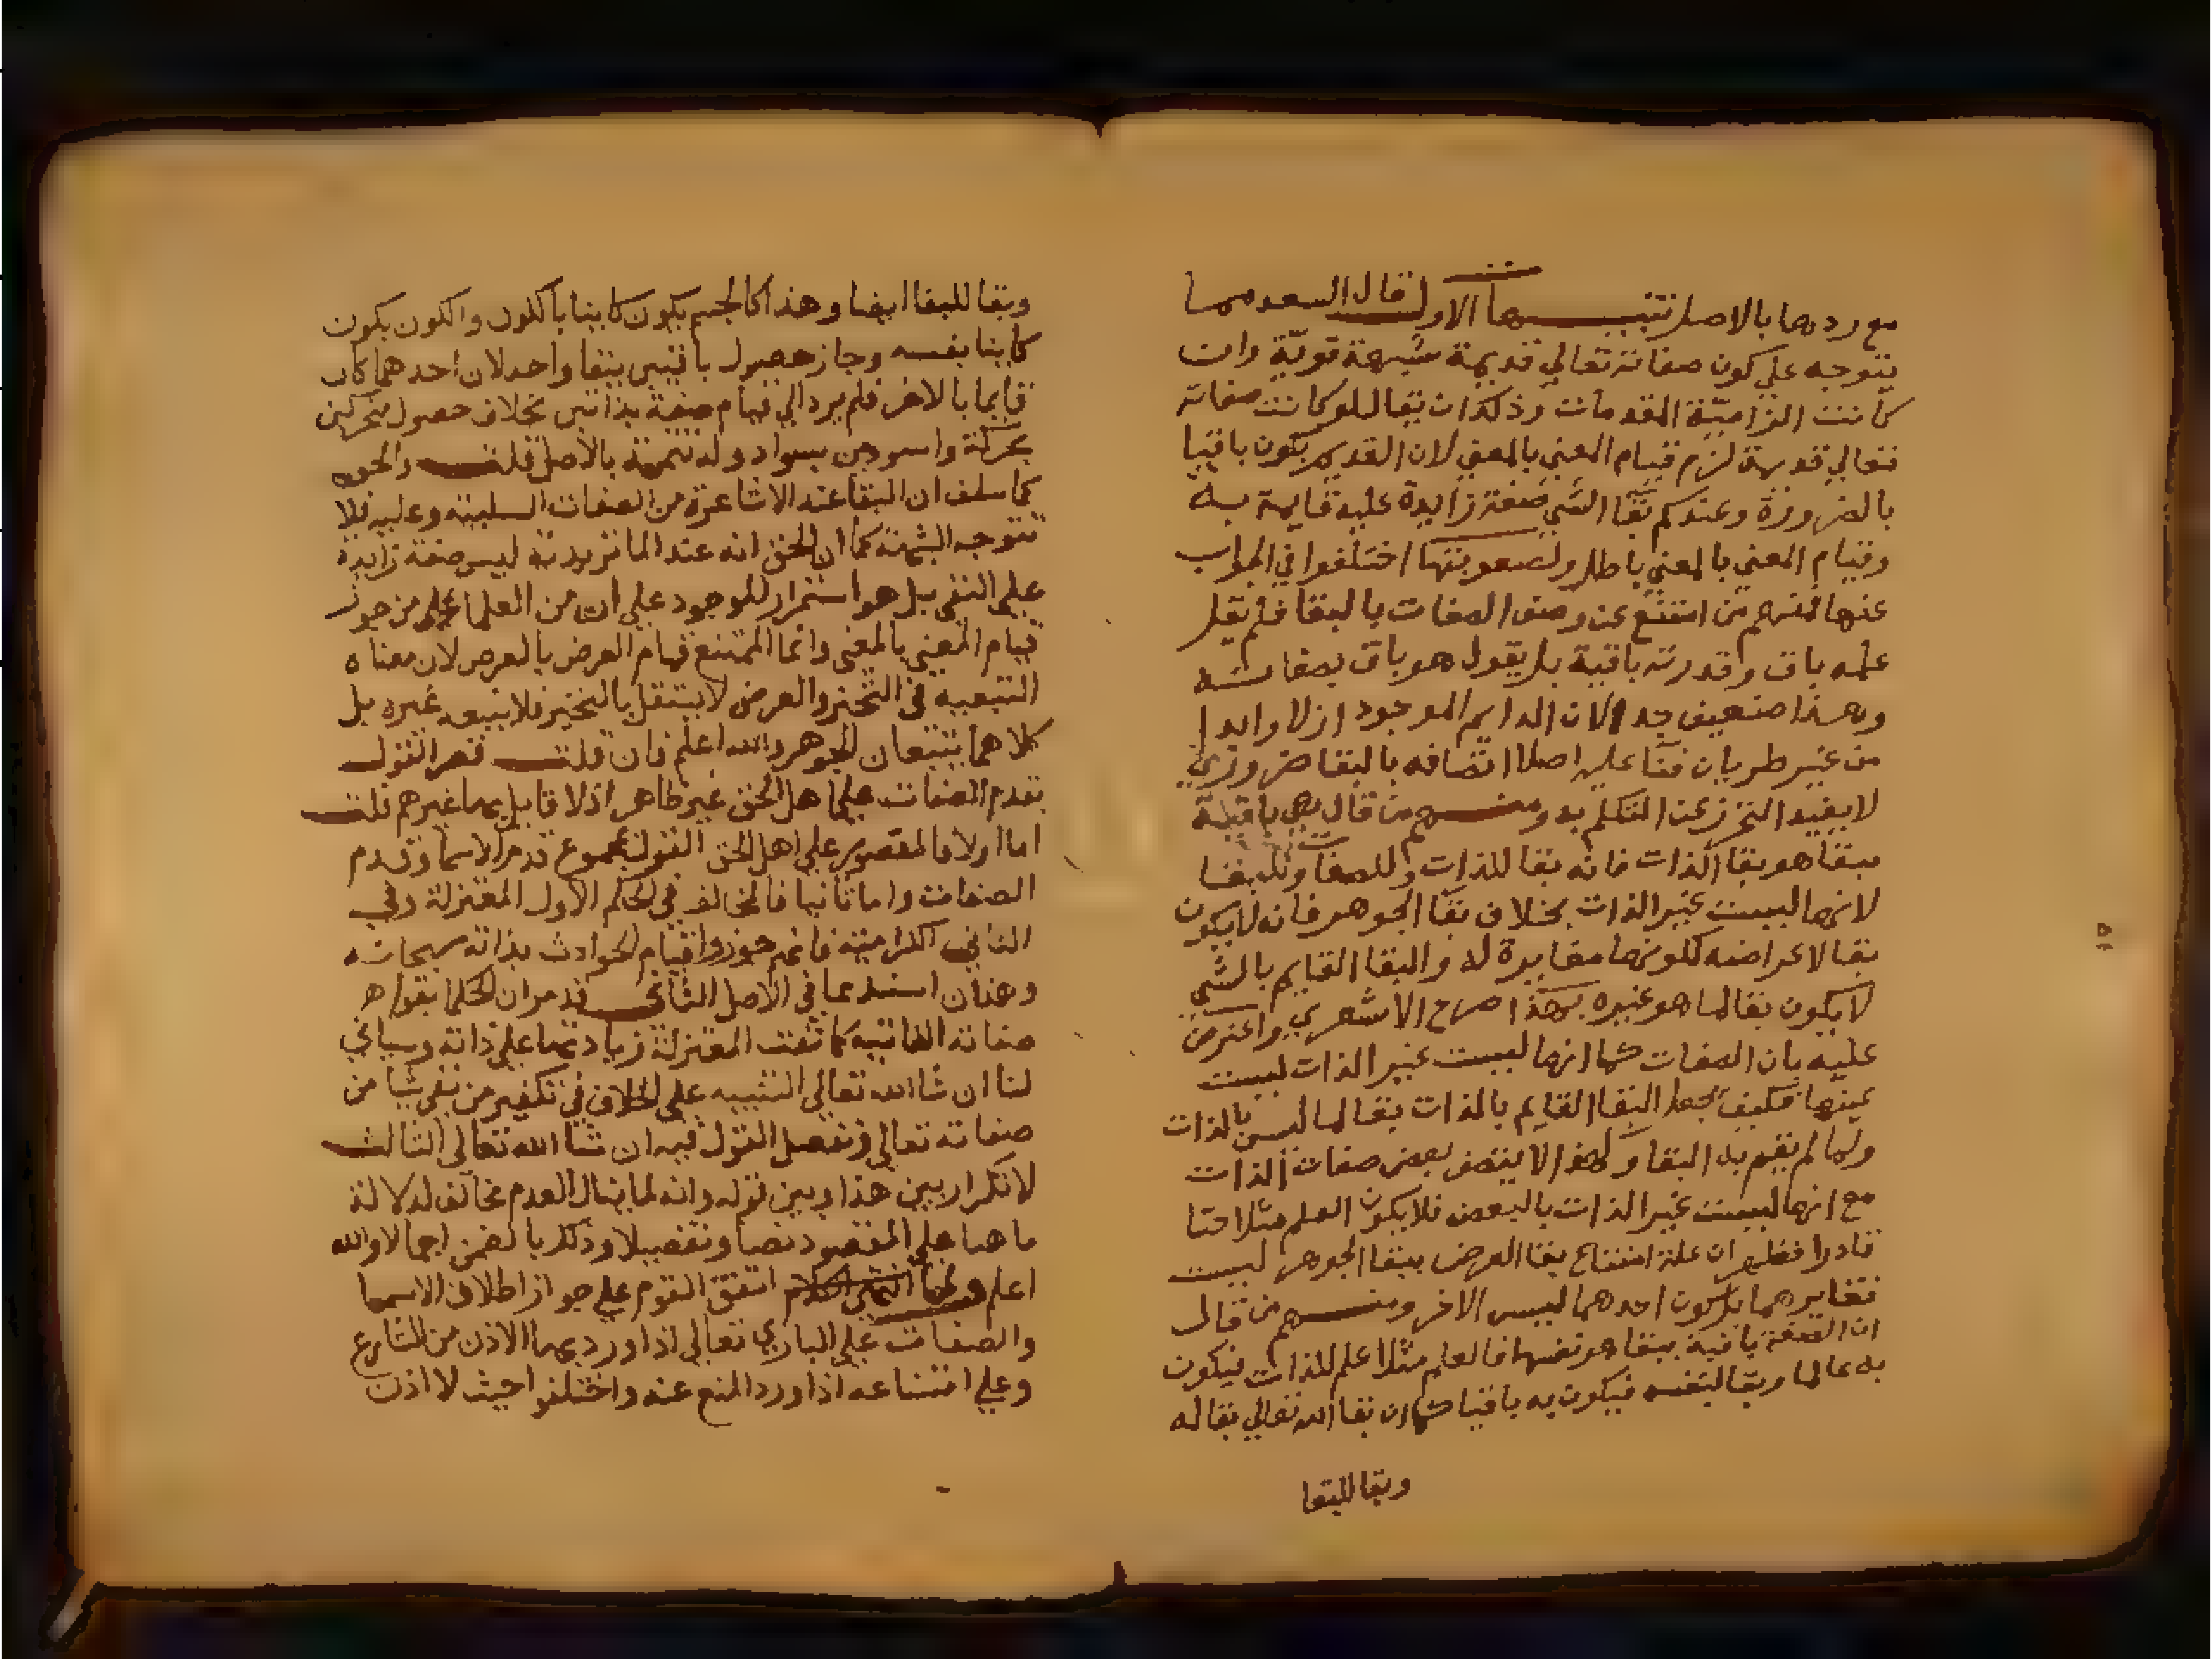 مع ردها بالاصل تنبيها الاول قال السعد مما
يتوجه علي كون صفاته تعالي قديمة شبهة قوية وان
كانت الزامية المقدمات وذلك ان يقال لو كانت صفاته
تعالي قديمة لزم قيام المعني بالمعني لان القديم يكون باقيا
بالضرورة وعندكم بقا الشي صفة زايدة عليه قايمة به
وقيام المعني بالمعني باطل ولصعوبتها اختلفوا في الجواب
عنها فمنهم من امتنع عن وصف الصفات بالبقا فلم يقل
علمه باق وقدرته باقية بل يقول هو باق بصفاته
وهذا ضعيف جدا لان الدايم الموجود ازلا وابدا
من غير طريان فنا عليه اصلا اتصافه بالبقا ضروري
لا يفيد التحرز عن التكلم به ومنهم من قال هي باقية
ببقا هو بقا الذات فانه بقا للذات وللصفات وللبقا
لانها ليست غير الذات بخلاف بقا الجوهر فانه لا يكون
بقا لاعراضه لكونها مغايرة له والبقا القايم بالشي
لا يكون بقا لما هو غيره بهذا صرح الاشعري واعترض
عليه بان الصفات كما انها ليست غير الذات ليست
عينها فكيف يجعل البقا القايم بالذات بقا لما ليس بالذات
ولما لم يقم به البقا ولهذا لا يتصف بعض صفات الذات
مع انها ليست غير الذات بالبعض فلا يكون العلم مثلا حيا
قادرا فظهر ان علة امتناع بقا العرض ببقا الجوهر ليست
تغايرهما بل كون احدهما ليس الاخر ومنهم من قال
ان الصفة باقية ببقا هو نفسها فالعلم مثلا علم للذات فيكون
به عالما وبقا لنفسه فيكون به باقيا كما ان بقا الله تعالي بقا له
وبقا للبقا
وبقا للبقا ايضا وهذا كالجسم يكون كاينا بالكون والكون يكون
كاينا بنفسه وجاز حصول باقيين ببقا واحد لان احدهما كان
قايما بالاخر فلم يرد الي قيام صفة بذاتين بخلاف حصول متحركين
بحركة واسودين بسواد وله تتمة بالاصل قلت والحق
كما سلف ان البقا عند الاشاعرة من الصفات السلبية وعليه فلا
تتوجه الشبهة كما ان الحق انه عند الماتريدية ليس صفة زايدة
علي النفي بل هو استمرار للوجود علي ان من العلما علي من جوز
قيام المعني بالمعني وانما الممتنع قيام العرض بالعرض لان معناه
التبعية في التحيز والعرض لا يستقل بالتحيز فلا يتبعه غيره بل
كلاهما يتبعان الجوهر والله اعلم فان قلت قصر القول
بقدم الصفات علي اهل الحق غير ظاهر اذ لا قايل بها غيرهم قلت
اما اولا فالمقصور علي اهل الحق القول بمجموع قدم الاسما وقدم
الصفات واما ثانيا فالمخالف في الحكم الاول المعتزلة وفي
الثاني الكرامية فانهم جوزوا قيام الحوادث بذاته سبحانه
وهذان استدعا في الاصل الثاني قد مر ان الحكما بقولهم
صفاته الذاتية كما نفت المعتزلة زيادتها علي ذاته وسياتي
لنا ان شا الله تعالي التنبيه علي الخلاف في تكفير من نفي شيا من
صفاته تعالي ونفصل القول فيه ان شا الله تعالي الثالث
لا تكرار بين هذا وبين قوله وانه لما ينال العدم مخالف لدلالة
ما هنا علي المقصود نصا وتفصيلا وذلك بالضمن اجمالا والله
اعلم ولما انتهي الكلام اتفق القوم علي جواز اطلاق الاسما
والصفات علي الباري تعالي اذا ورد بها الاذن من الشارع
وعلي امتناعه اذا ورد المنع عنه واختلفوا حيث لا اذن